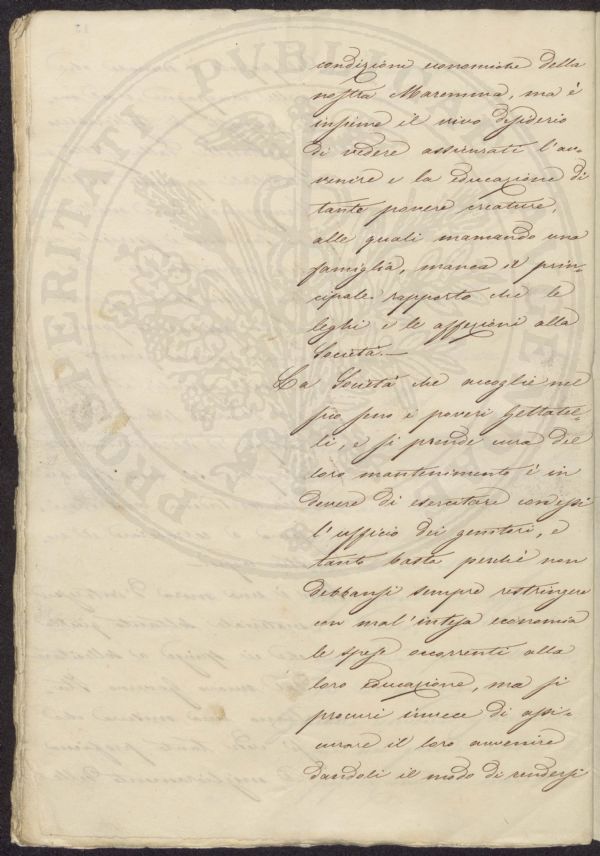 condizioni economiche della
nostra Maremma, ma è
insieme il vivo desiderio
di vedere assicurati l'av-
venire e la educazione di
tante povere creature,
alle quali mancando una
famiglia, manca il prin-
cipale rapporto che le
leghi e le affezioni alla
Società.—
La Società che accoglie nel
pio seno i poveri gettatel-
li, e si prende cura del
loro mantenimento è in
dovere di esercitare con essi
l'ufficio dei genitori, e
tanto basta perchè non
debbansi sempre restringere
con mal'intesa economia
le spese occorrenti alla
loro educazione, ma si
procuri invece di assi-
curare il loro avvenire
dandoli il modo di rendersi
PROSPERITATI PVBLICAE